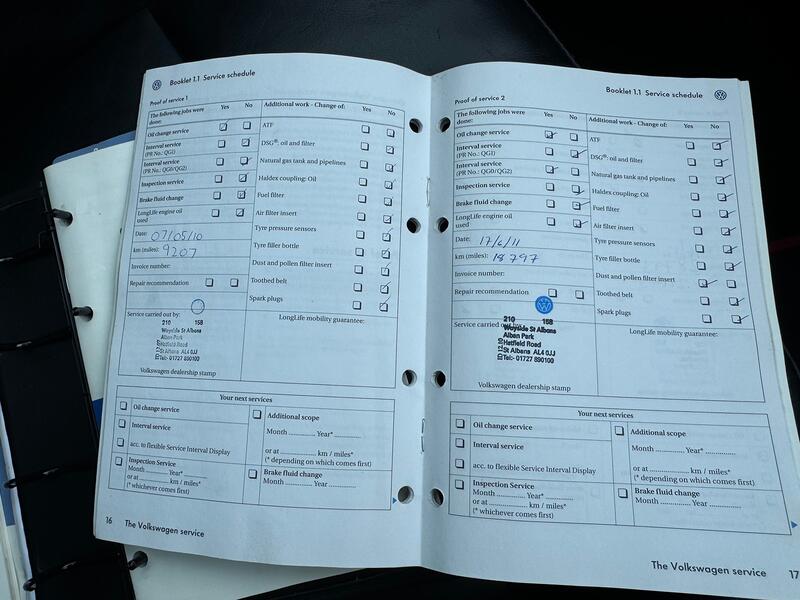 Booklet 1.1 Service schedule
Proof of service 1
The following jobs were done: Yes No
Oil change service
Interval service
(PR No.: QG1)
Interval service
(PR No.: QG0/QG2)
Inspection service
Brake fluid change
LongLife engine oil used
Date: 07/05/10
km (miles): 9207
Invoice number:
Repair recommendation
Additional work - Change of: Yes No
ATF
DSG®: oil and filter
Natural gas tank and pipelines
Haldex coupling: Oil
Fuel filter
Air filter insert
Tyre pressure sensors
Tyre filler bottle
Dust and pollen filter insert
Toothed belt
Spark plugs
Service carried out by:
210 158
Wayside St Albans
Alban Park
Hatfield Road
St Albans AL4 0JJ
Tel:- 01727 890100
Volkswagen dealership stamp
LongLife mobility guarantee:
Your next services
Oil change service
Interval service
acc. to flexible Service Interval Display
Inspection Service
Month ............ Year* ............
or at ............ km / miles*
(* whichever comes first)
Additional scope
Month ............ Year* ............
or at ............ km / miles*
(* depending on which comes first)
Brake fluid change
Month ............ Year ............
16 The Volkswagen service
Booklet 1.1 Service schedule
Proof of service 2
The following jobs were done: Yes No
Oil change service
Interval service
(PR No.: QG1)
Interval service
(PR No.: QG0/QG2)
Inspection service
Brake fluid change
LongLife engine oil used
Date: 17/6/11
km (miles): 18797
Invoice number:
Repair recommendation
Additional work - Change of: Yes No
ATF
DSG®: oil and filter
Natural gas tank and pipelines
Haldex coupling: Oil
Fuel filter
Air filter insert
Tyre pressure sensors
Tyre filler bottle
Dust and pollen filter insert
Toothed belt
Spark plugs
Service carried out by:
210 158
Wayside St Albans
Alban Park
Hatfield Road
St Albans AL4 0JJ
Tel:- 01727 890100
Volkswagen dealership stamp
LongLife mobility guarantee:
Your next services
Oil change service
Interval service
acc. to flexible Service Interval Display
Inspection Service
Month ............ Year* ............
or at ............ km / miles*
(* whichever comes first)
Additional scope
Month ............ Year* ............
or at ............ km / miles*
(* depending on which comes first)
Brake fluid change
Month ............ Year ............
The Volkswagen service 17